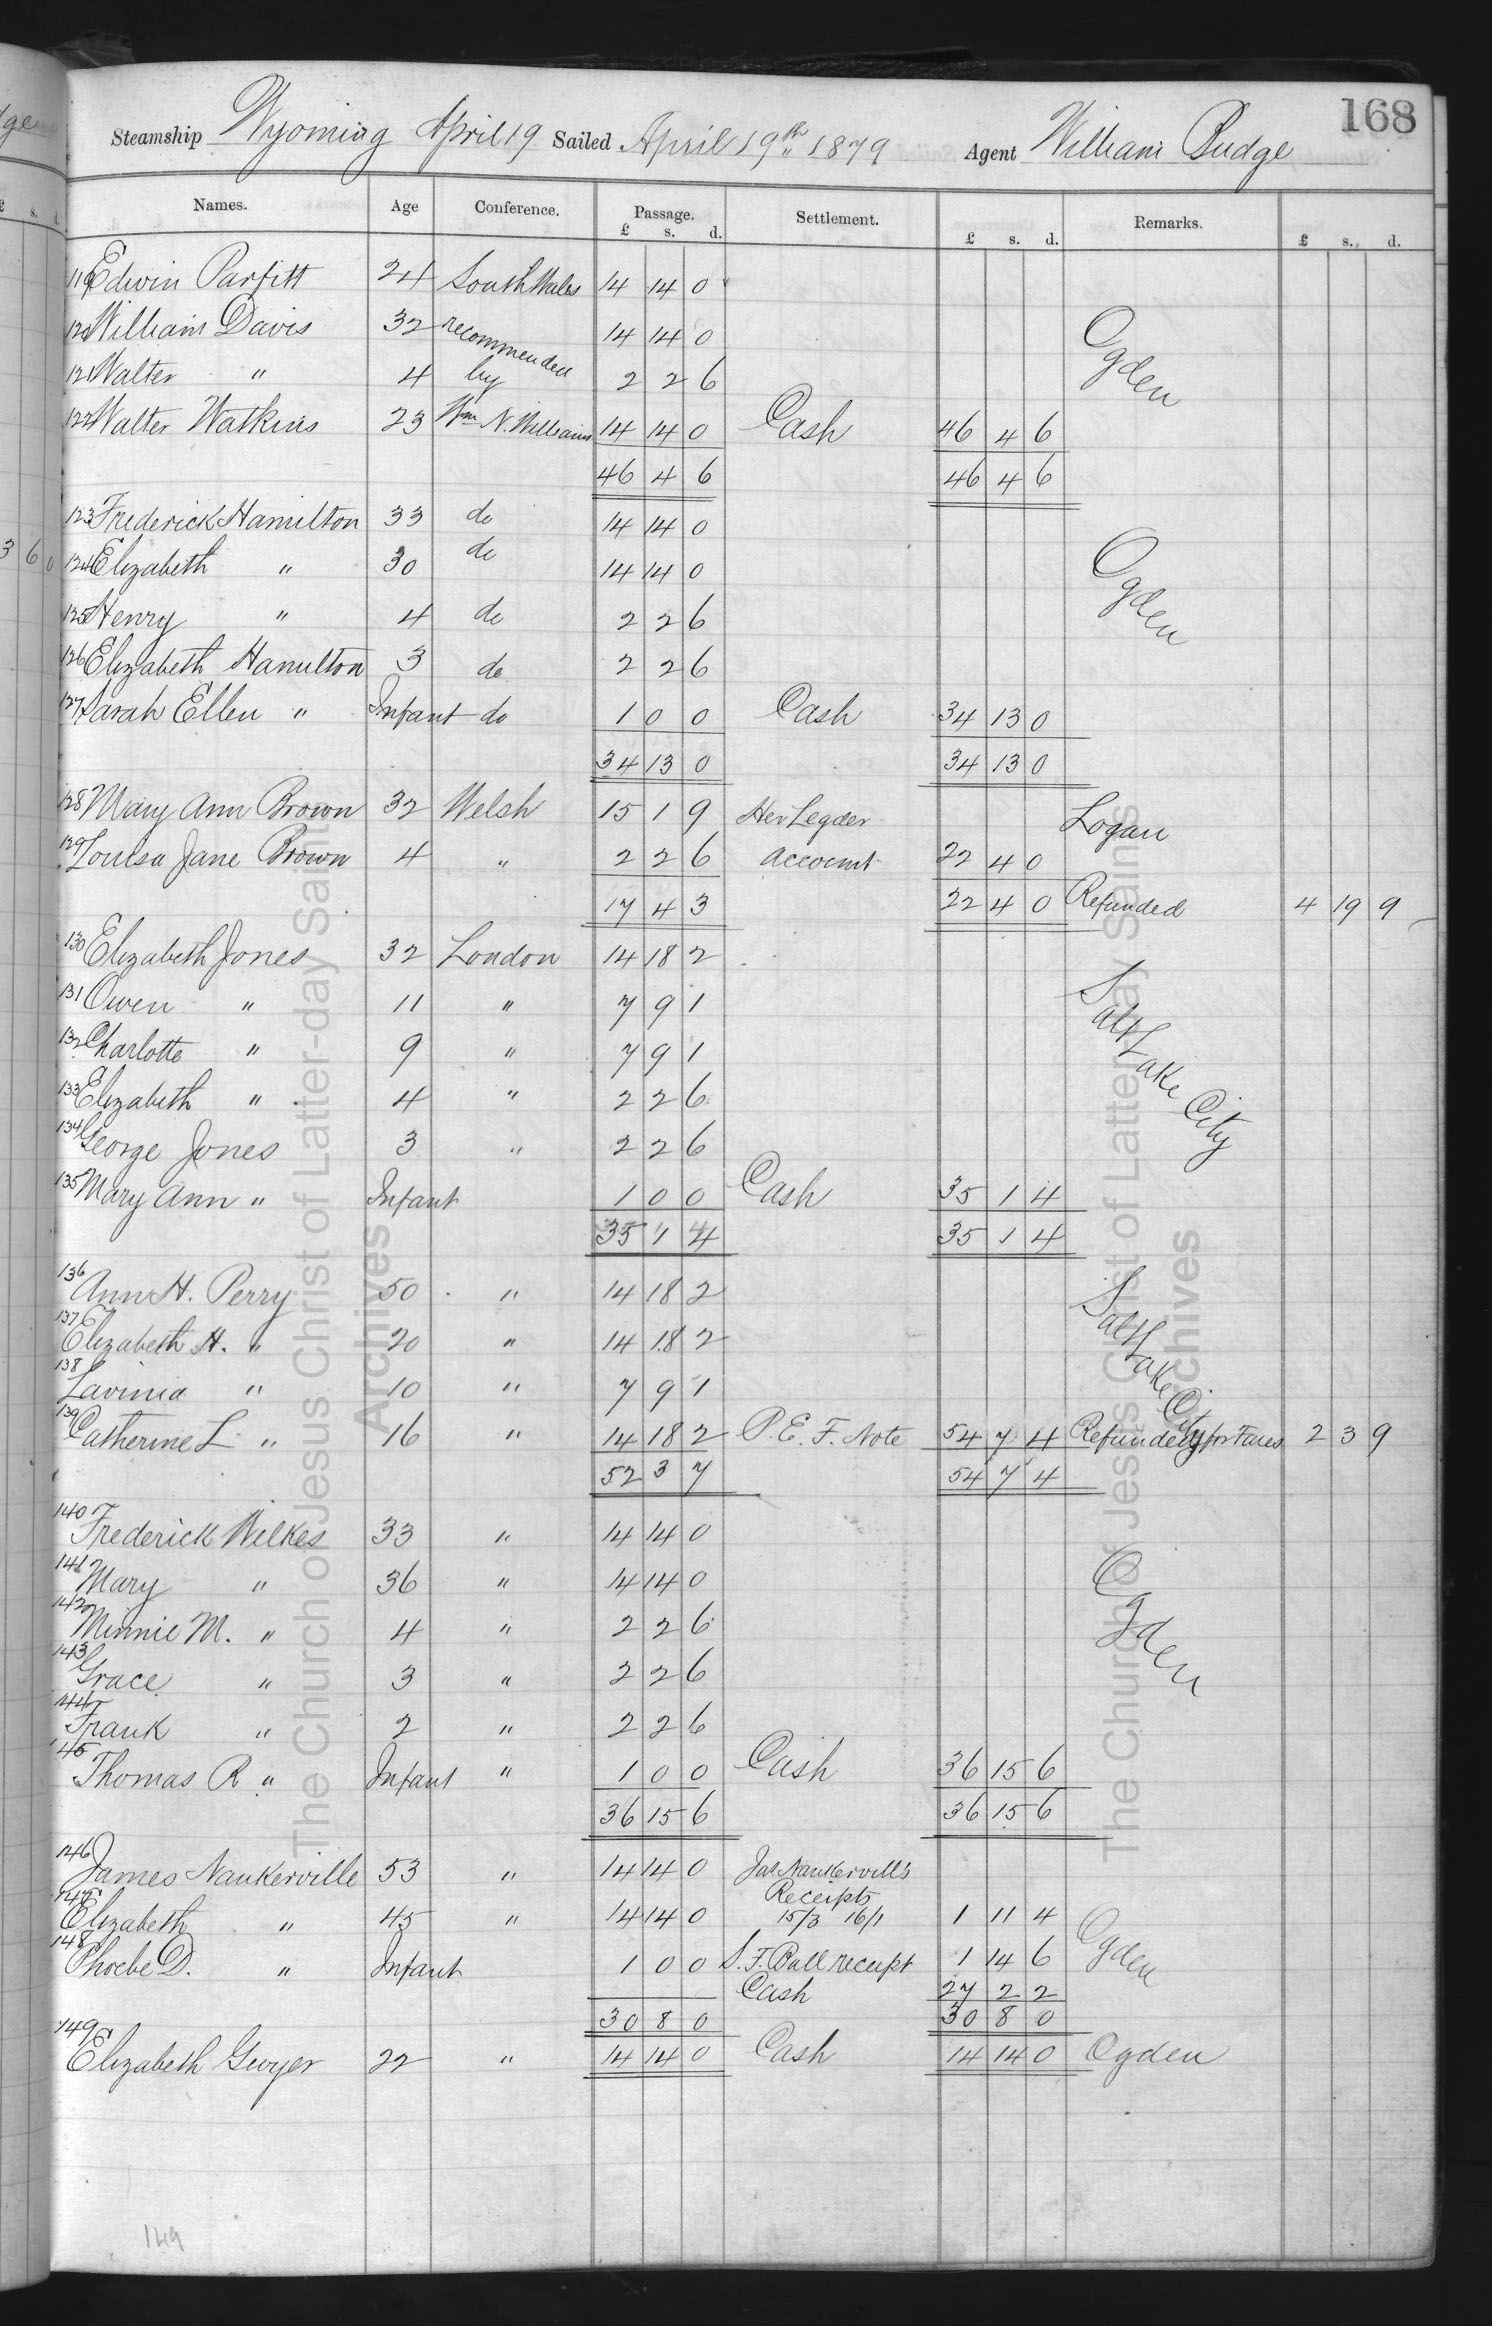 168
Steamship Wyoming April 19 Sailed April 19th 1879 Agent William Budge
Names. Age Conference. Passage. Settlement. Remarks.
£ s. d. £ s. d. £ s. d.
119 Edwin Parfitt 24 South Wales 14 14 0
120 William Davis 32 recommended 14 14 0 Ogden
121 Walter " 4 by 2 2 6
122 Walter Watkins 23 Wm N. Williams 14 14 0 Cash 46 4 6
46 4 6 46 4 6
123 Frederick Hamilton 33 do 14 14 0
124 Elizabeth " 30 do 14 14 0 Ogden
125 Henry " 4 do 2 2 6
126 Elizabeth Hamilton 3 do 2 2 6
127 Sarah Ellen " Infant do 1 0 0 Cash 34 13 0
34 13 0 34 13 0
128 Mary Ann Brown 32 Welsh 15 1 9 Her Legder Logan
129 Louisa Jane Brown 4 " 2 2 6 account 22 4 0
17 4 3 22 4 0 Refunded 4 19 9
130 Elizabeth Jones 32 London 14 18 2
131 Owen " 11 " 7 9 1 Salt Lake City
132 Charlotte " 9 " 7 9 1
133 Elizabeth " 4 " 2 2 6
134 George Jones 3 " 2 2 6
135 Mary Ann " Infant 1 0 0 Cash 35 1 4
35 1 4 35 1 4
136 Ann H. Perry 50 " 14 18 2 Salt Lake City
137 Elizabeth H. " 20 " 14 18 2
138 Lavinia " 10 " 7 9 1
139 Catherine L " 16 " 14 18 2 P.E.F. Note 54 7 4 Refunded for Fares 2 3 9
52 3 7 54 7 4
140 Frederick Wilkes 33 " 14 14 0
141 Mary " 36 " 14 14 0 Ogden
142 Minnie M. " 4 " 2 2 6
143 Grace " 3 " 2 2 6
144 Frank " 2 " 2 2 6
145 Thomas R " Infant " 1 0 0 Cash 36 15 6
36 15 6 36 15 6
146 James Nankerville 53 " 14 14 0 Jas Nankervill's
Receipts
147 Elizabeth " 45 " 14 14 0 15/3 16/1 1 11 4 Ogden
148 Phoebe D. " Infant 1 0 0 S. F. Ball receipt 1 14 6
Cash 27 2 2
30 8 0 30 8 0
149 Elizabeth Gwyer 22 " 14 14 0 Cash 14 14 0 Ogden
149
The Church of Jesus Christ of Latter-day Saints
Archives
The Church of Jesus Christ of Latter-day Saints
Archives
3 6 0
£ s. d.